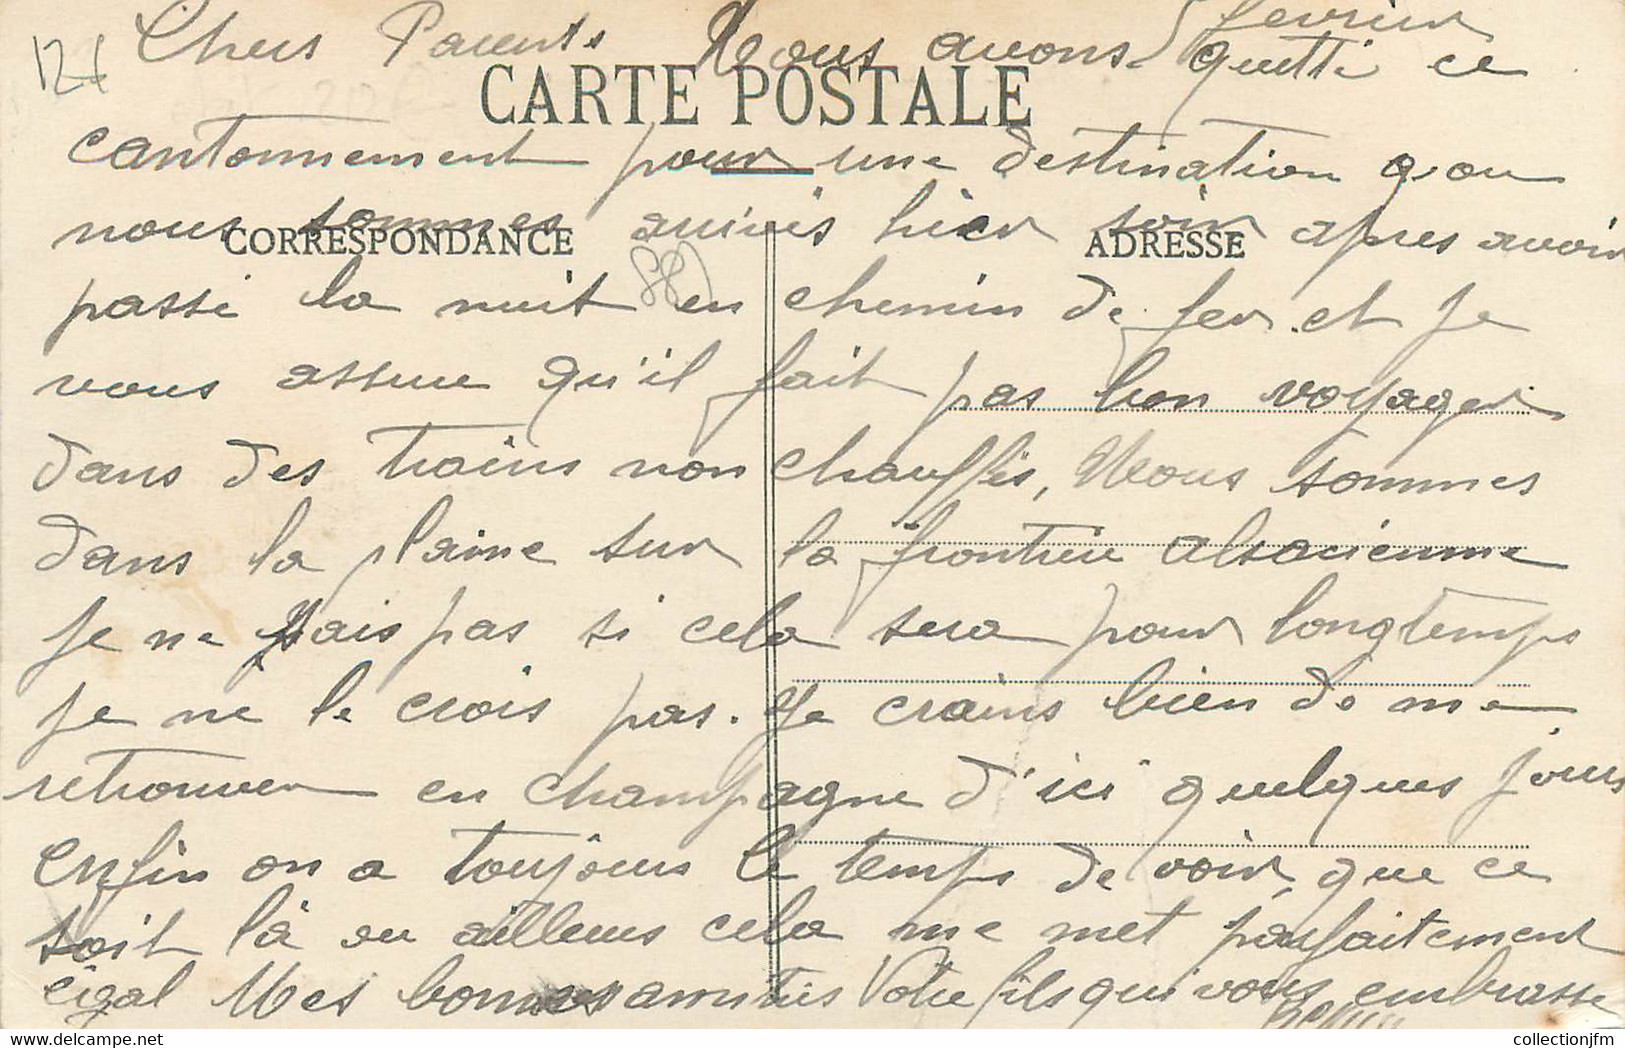 5 février
Chers Parents Nous avons quitté ce
CARTE POSTALE
cantonnement pour une destination q. ou
nous sommes arrivés hier soir apres avoir
CORRESPONDANCE
ADRESSE
passé la nuit en chemin de fer. et je
vous assure qu'il fait pas bon voyager
dans des trains non chauffés, Nous sommes
dans la plaine sur la frontière alsacienne
je ne sais pas si cela sera pour longtemps
je ne le crois pas. Je crains bien de me
retrouver en champagne d'ici quelques jours
enfin on a toujours le temps de voir, que ce
soit là ou ailleurs cela me met parfaitement
égal Mes bonnes amitiés Votre fils qui vous embrasse
collectionjfm